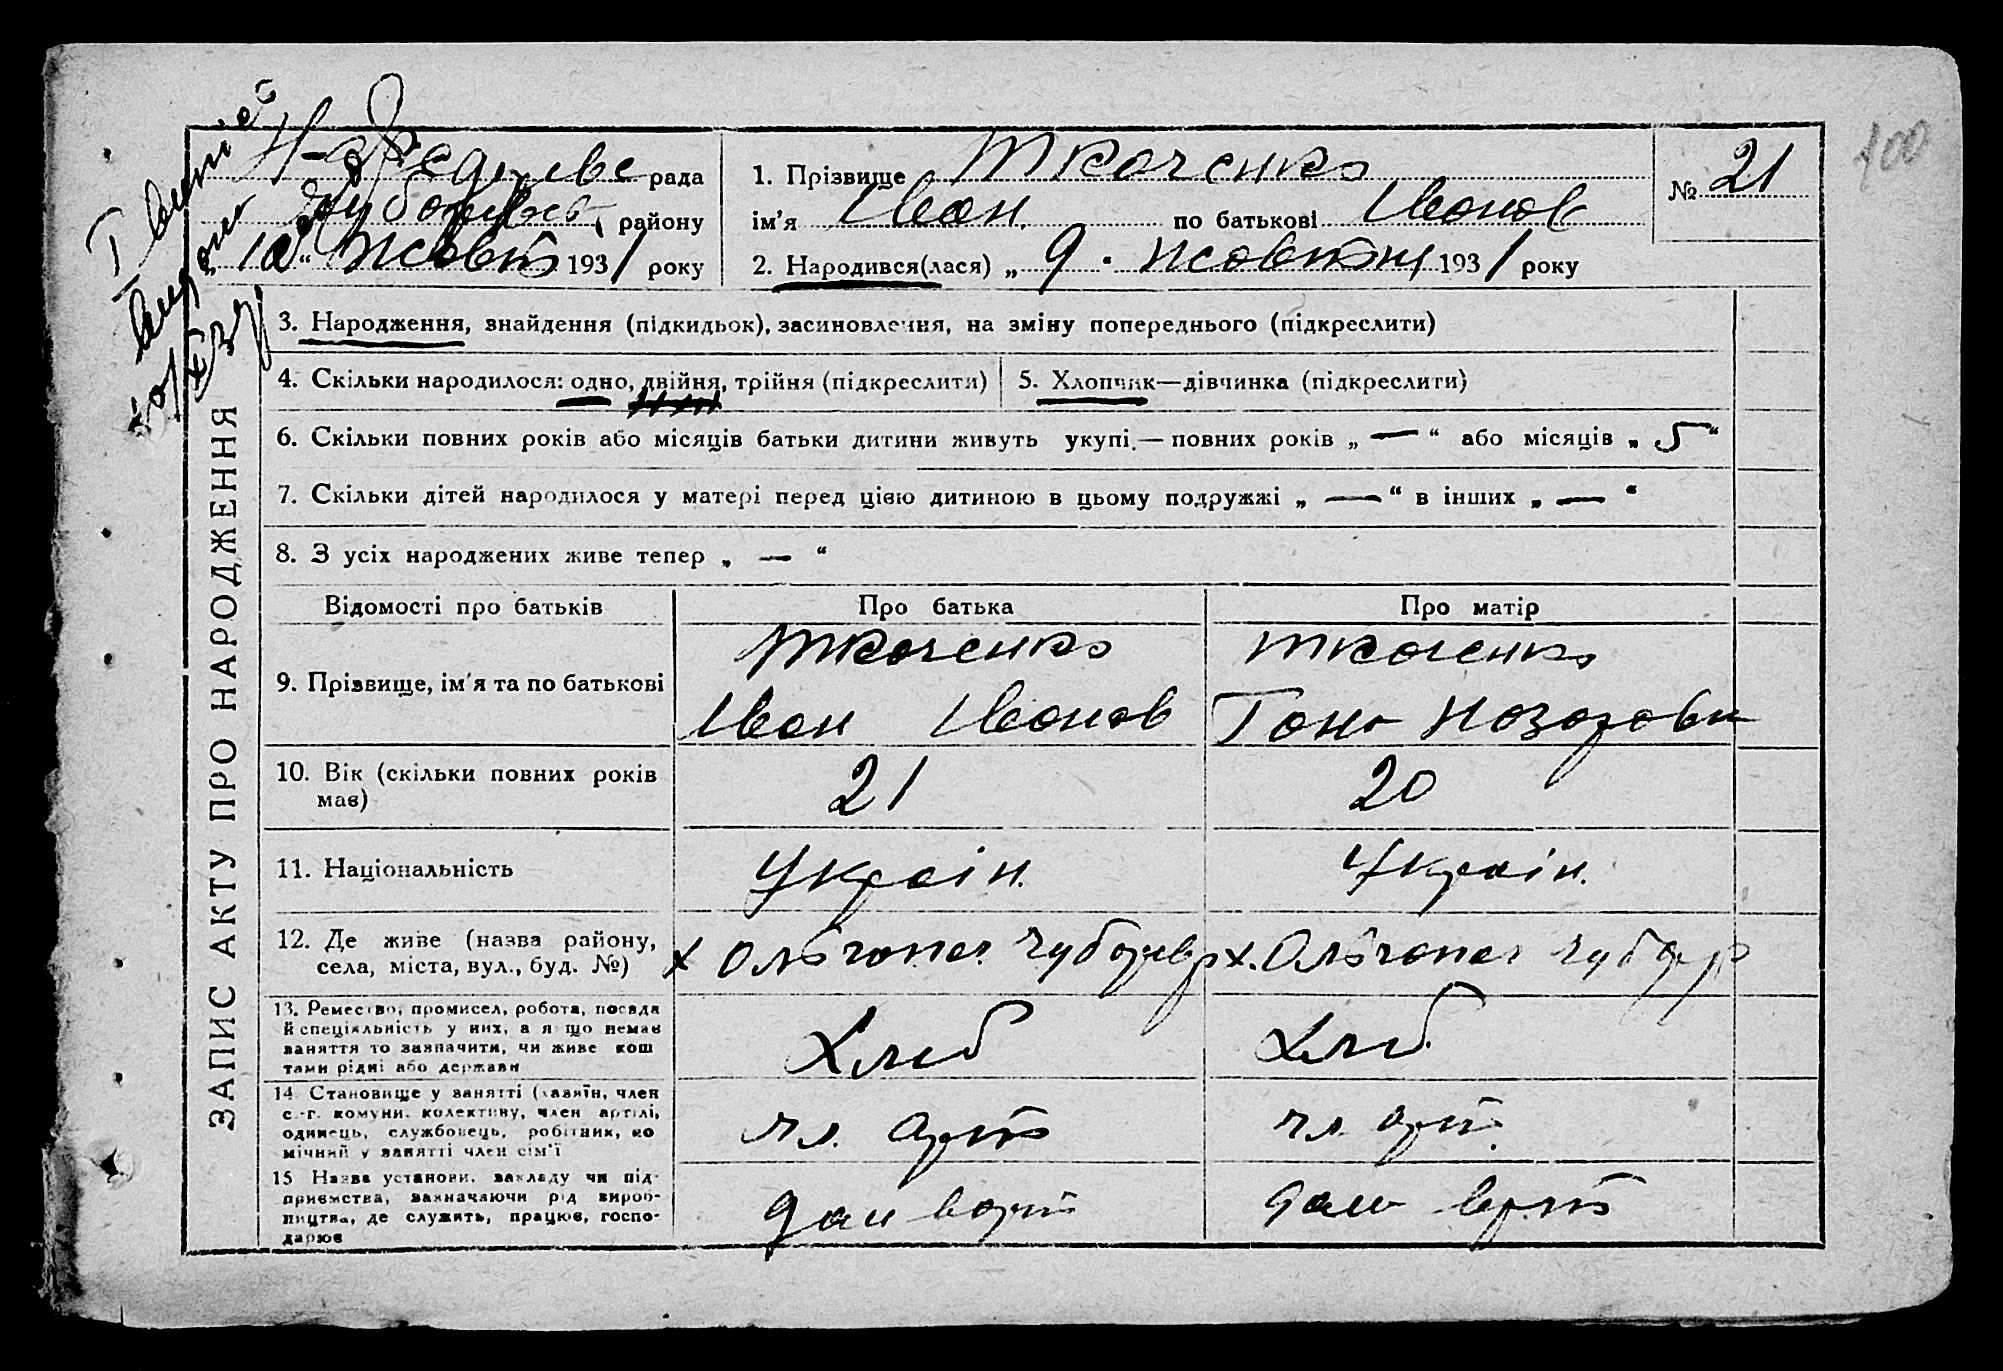 400
І витяг
видан
рада
району
"10" Жовт 1931 року
1. Прізвище Ткаченко
ім’я Іван по батькові Іванов
2. Народився(лася) „ 9 " жовтня 1931 року
№ 21
ЗАПИС АКТУ ПРО НАРОДЖЕННЯ
3. Народження, знайдення (підкидьок), засиновлення, на зміну попереднього (підкреслити)
4. Скільки народилося: одно, двійня, трійня (підкреслити)
5. Хлопчик—дівчинка (підкреслити)
6. Скільки повних років або місяців батьки дитини живуть укупі.— повних років „ — “ або місяців „ 5 “
7. Скільки дітей народилося у матері перед цією дитиною в цьому подружжі „ — “ в інших „ — “
8. З усіх народжених живе тепер „ — “
Відомості про батьків Про батька Про матір
9. Прізвище, ім’я та по батькові
Ткаченко Ткаченко
Іван Іванов Ганя Назаровн
10. Вік (скільки повних років має)
21 20
11. Національність Україн. Україн.
12. Де живе (назва району,
села, міста, вул., буд. №)
х Ольгопол х. Ольгопол
13. Ремество, промисел, робота, посада
й спеціяльність у них, а якщо немає
заняття то зазначити, чи живе кош
тами рідні або держави
Хліб Хліб.
14. Становище у занятті (хазяїн, член
с.-г. комуни, колективу, член артілі,
одинець, службовець, робітник, по
мічний у занятті член сім’ї
чл. арт чл. арт.
15. Назва установи, закладу чи під-
приємства, зазначаючи рід вироб-
ництва, де служить, працює, госпо-
дарює